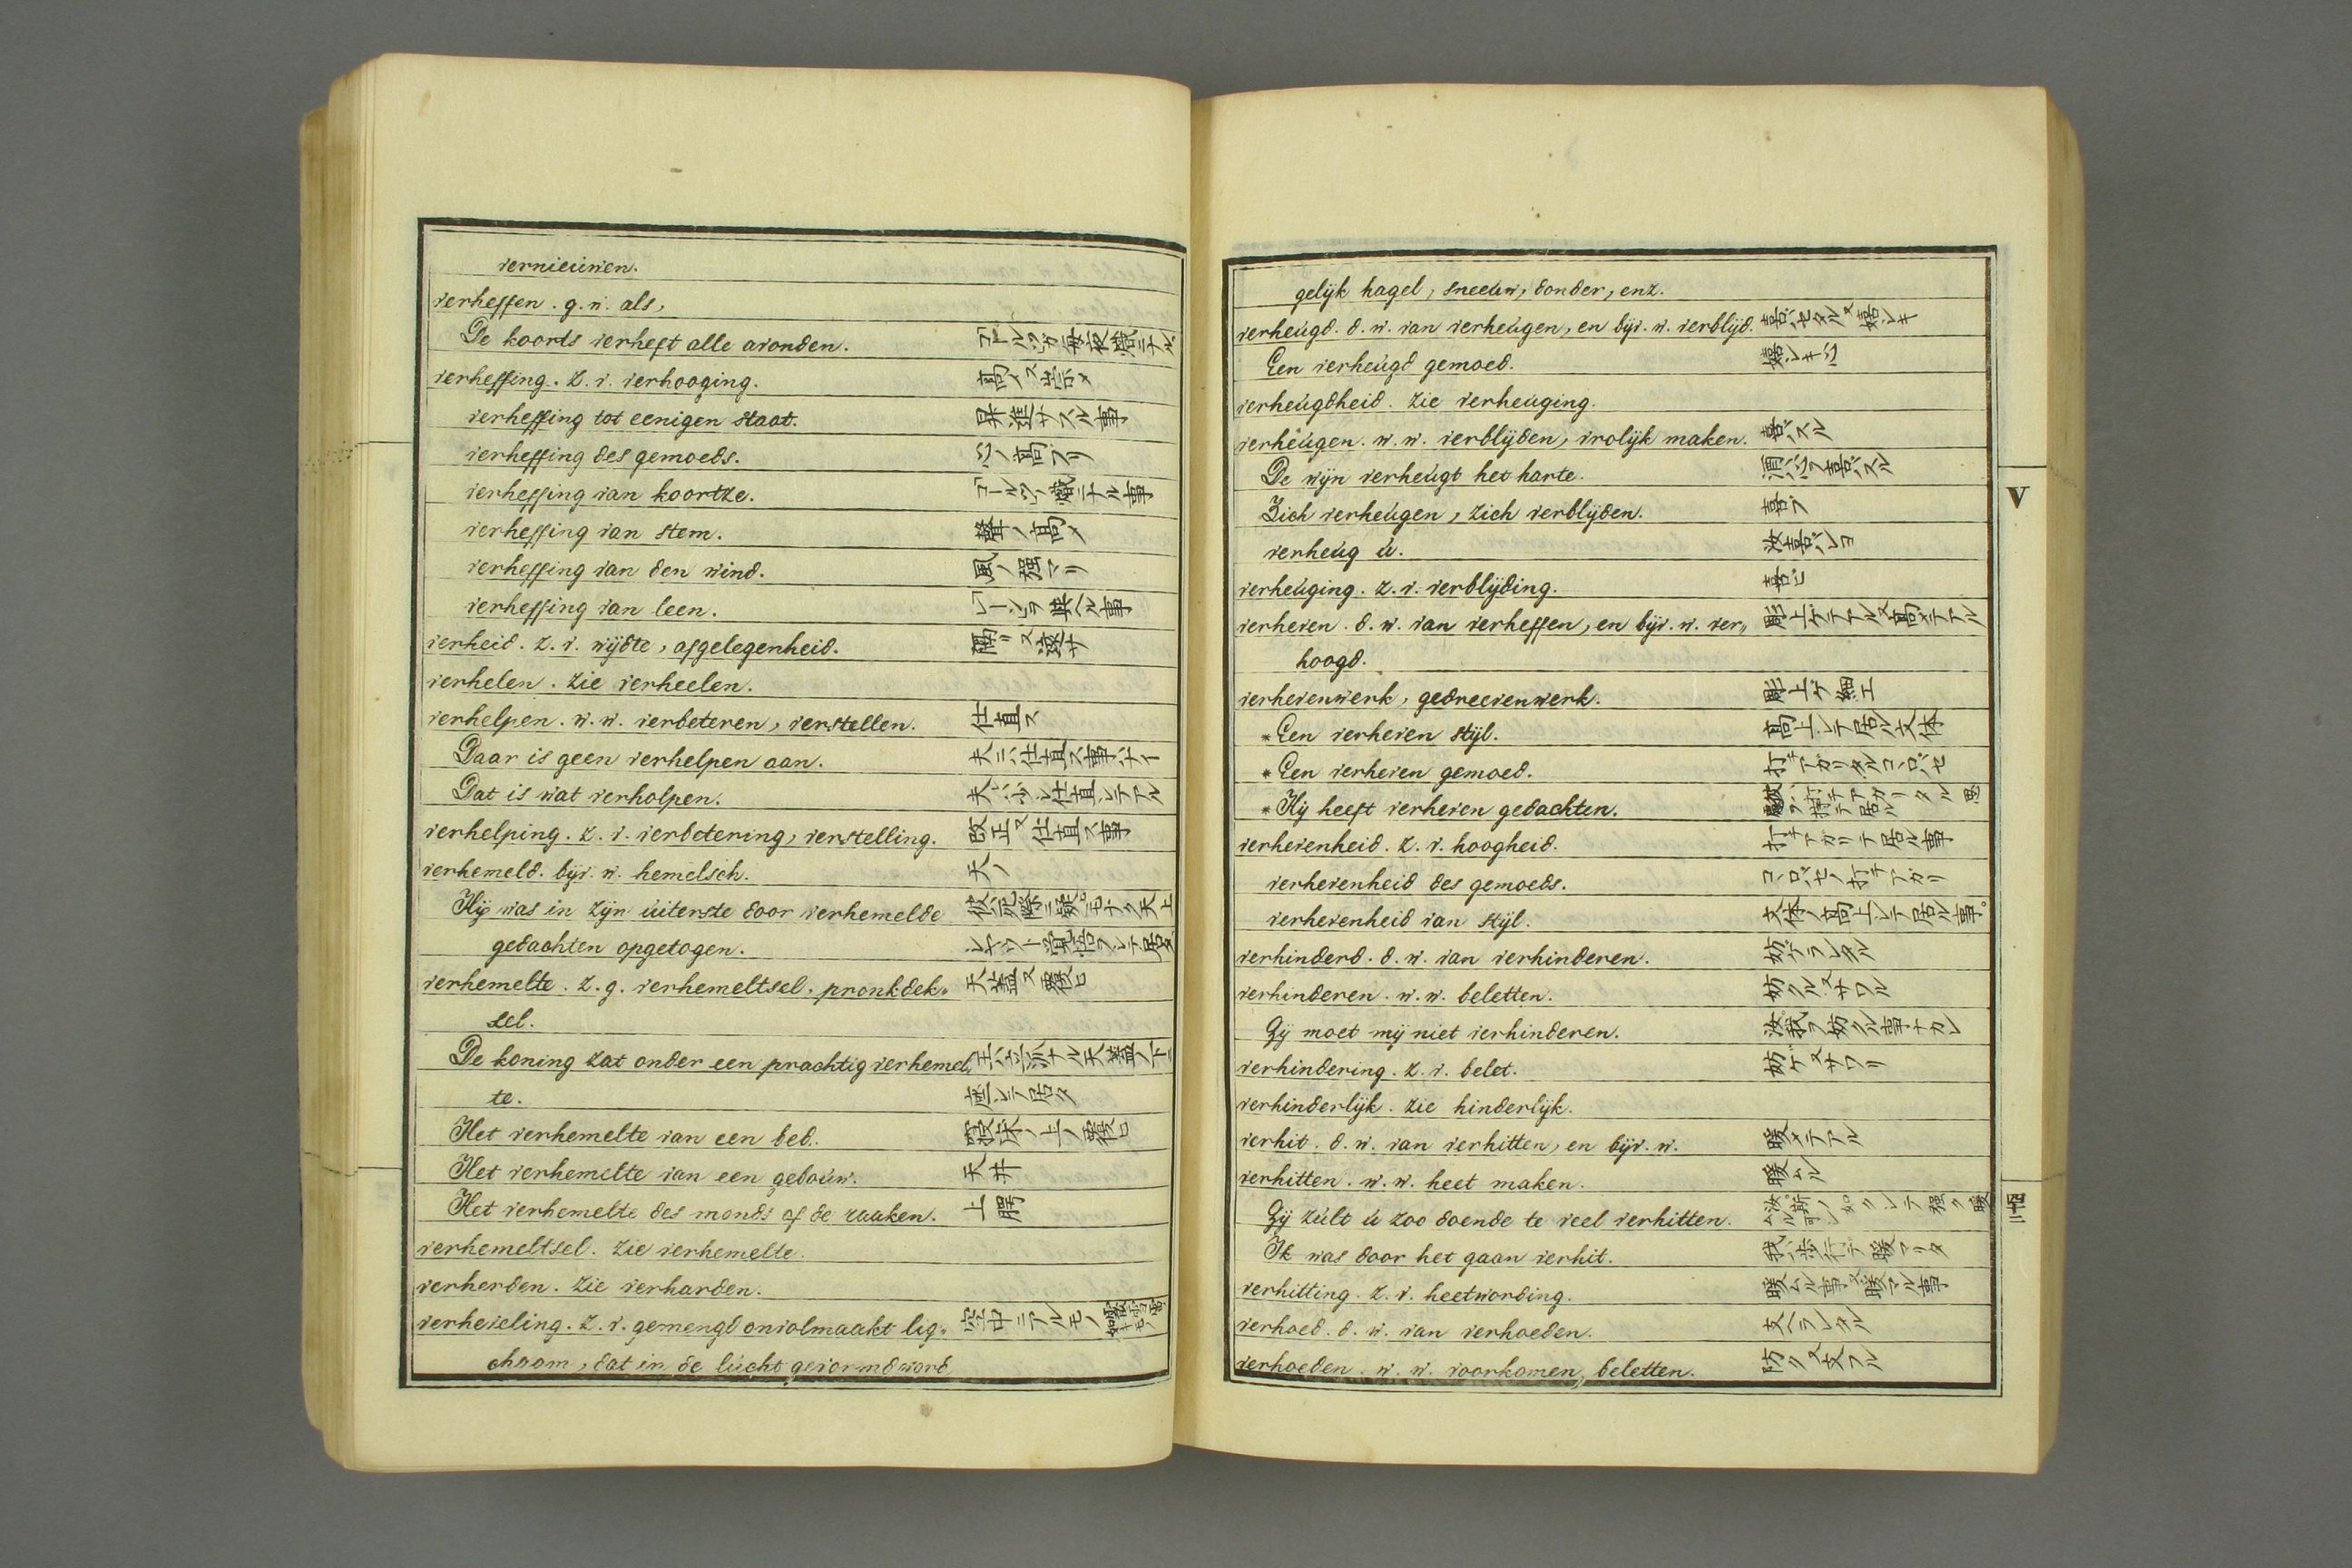 vernieuwen.
verheffen. g. w. als,
De koorts verheft alle avonden. コールツガ毎夜熾ニナル
verheffing. z. v. verhooging. 高メ又崇メ
verheffing tot eenigen staat. 昇進サスル事
verheffing des gemoeds. 心ノ高ブリ
verheffing van koortze. コールツノ熾ニナル事
verheffing van stem. 聲ノ高メ
verheffing van den wind. 風ノ強マリ
verheffing van leen.
verheid. z. v. wijdte, afgelegenheid.
verhelen. zie verheelen.
verhelpen. w. w. verbeteren, verstellen. 仕直ス
Daar is geen verhelpen aan. 夫ニハ仕直ス事ハナイ
Dat is wat verholpen. 夫ハ少シ仕直シテアル
verhelping. z. v. verbetering, verstelling. 改正又仕直ス事
verhemeld. bijv. w. hemelsch. 天ノ
Hij was in zijn uiterste door verhemelde
gedachten opgetogen.
verhemelte. z. g. verhemeltsel, pronkdek= 天蓋又覆ヒ
sel.
De koning zat onder een prachtig verhemel= 王ハ立派ナル天蓋ノ下ニ
te. 座シテ居タ
Het verhemelte van een bed. 寝床ノ上ノ覆ヒ
Het verhemelte van een gebouw. 天井
Het verhemelte des monds of de raaken. 上腭
verhemeltsel. zie verhemelte.
verherden. zie verharden.
verheveling. z. v. gemengd onvolmaakt lig= 空中ニアルモノ
chaam, dat in de lucht gevormd word
gelijk hagel, sneeuw, donder, enz.
verheugd. d. w. van verheugen, en bijv. w. verblijd. 喜バセタル又嬉シキ
Een verheugd gemoed. 嬉シキ心
verheugdheid. zie verheuging.
verheugen. w. w. verblijden, vrolijk maken. 喜バスル
De wijn verheugt het harte. 酒ハ心ヲ喜バスル
Zich verheugen, zich verblijden. 喜ブ
verheug u. 汝喜バレヨ
verheuging. z. v. verblijding. 喜ビ
verheven. d. w. van verheffen, en bijv. w. ver= 彫上ゲテアル又高メテアル
hoogd.
verhevenwerk, gedreevenwerk. 彫上ゲ細工
*Een verheven stijl. 高上シテ居ル文体
*Een verheven gemoed. 打チアガリタルコヽロバセ
*Hij heeft verheven gedachten. 彼ハ打チアガリタル思慮ヲ持テ居ル
verhevenheid. z. v. hoogheid. 打チアガリテ居ル事
verhevenheid des gemoeds. コヽロバセノ打チアガリ
verhevenheid van stijl. 文体ノ高上シテ居ル事
verhinderd. d. w. van verhinderen. 妨ゲラレタル
verhinderen. w. w. beletten. 妨グル又サワル
Gij moet mij niet verhinderen. 汝我ヲ妨グル事ナカレ
verhindering. z. v. belet. 妨ゲ又サワリ
verhinderlijk. zie hinderlijk.
verhit. d. w. van verhitten, en bijv. w. 暖メテアル
verhitten. w. w. heet maken. 暖ムル
Gij zult u zoo doende te veel verhitten. 汝ハ斯ノ如クシテ強ク暖ムル可シ
Ik was door het gaan verhit. 我ハ歩行テ暖マリタ
verhitting. z. v. heetwording. 暖ムル事又暖マル事
verhoed. d. w. van verhoeden. 支ヘラレタル
verhoeden. w. w. voorkomen, beletten. 防グ又支フル
V